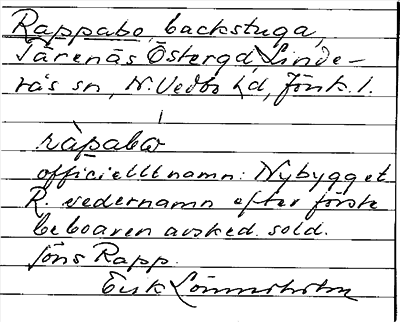 Rappabo, backstuga,
Tärenäs Östergd, Linde-
rås sn, N. Vedbo hd, Jönk. l.
ràpabω
officiellt namn: Nybygget
R. vedernamn efter förste
beboaren avsked. sold.
Jöns Rapp.
Erik Lönnerholm